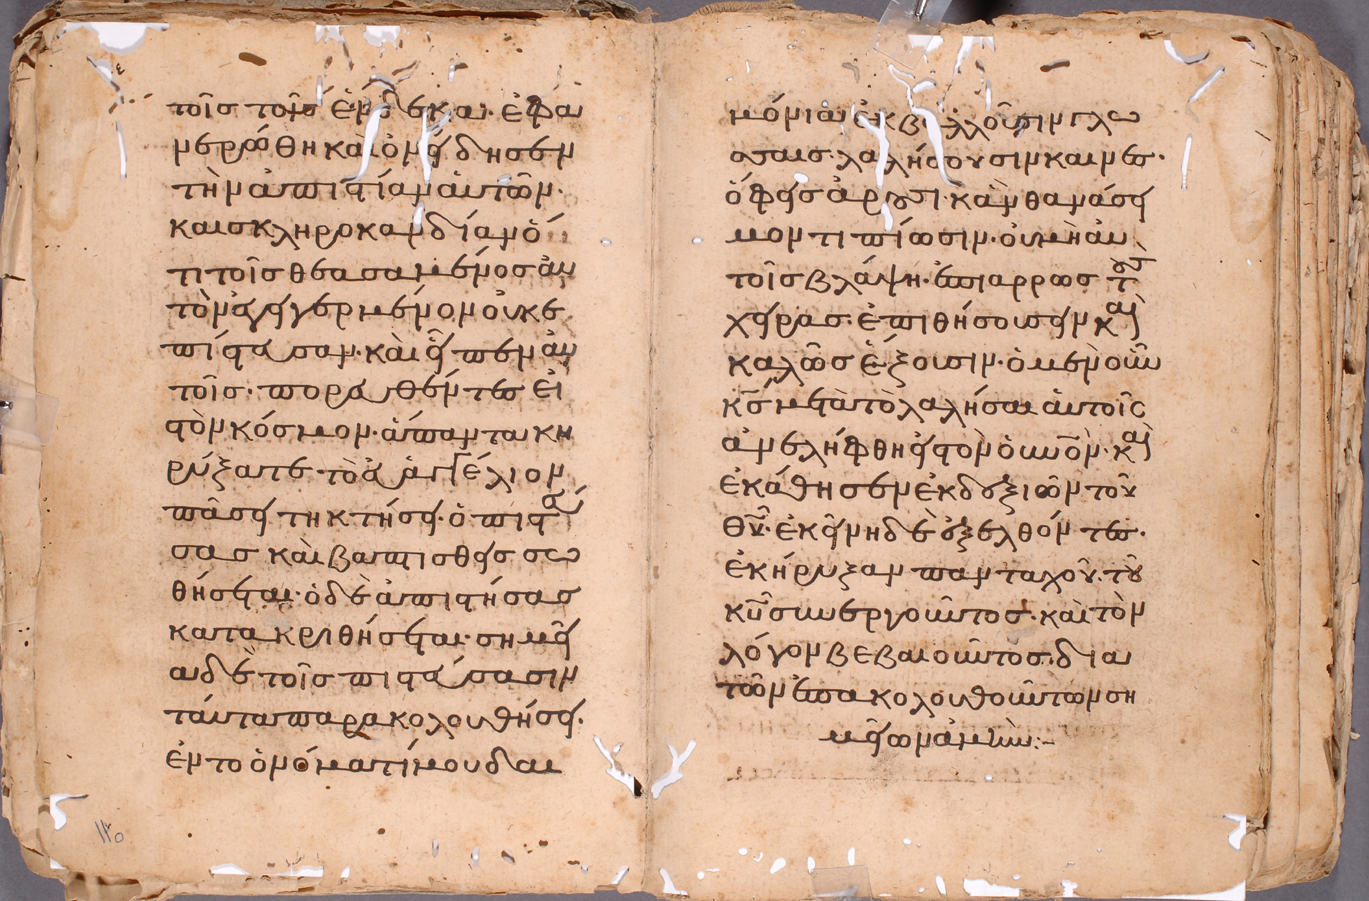 τοῖς τοῖς ἕνδεκα· ἐφα
νερώθη καὶ ὀνείδησεν
τὴν ἀπιστίαν ἀυτῶν·
και σκληροκαρδίαν ὅ
τι τοῖς θεασαμένοσ ἀυ
τὸν ἐγηγερμένον οὐκ ε
πίστευσαν· καὶ εἶπεν ἀυ
τοῖς· πορευθέντες εἰ
στὸν κόσμον· ἅπαντα κη
ρύξατε τὸ ἐυἀγγέλιον
πᾶσῃ τη κτήσῃ· ὁ πιστεύ
σας καὶ βαπτισθεὶς σω
θήσεται· ὁ δὲ ἀπιστήσας
κατακριθήσεται· σημεῖ
α δὲ τοῖς πιστεύσασιν
τάυτα παρακολουθήσει·
ἐν το ὀνόματί μου δαι
μόνια ἐκβάλλοῦσιν γλω
σσαις λαλήσουσιν καιναις·
ὄφεις ἀροῦσι· κἂν θανάσι
μον τι πίωσιν· ὀυ μὴ ἀυ
τοῖς βλάψη· ἐπι αρρωστους
χεῖρας· ἐπιθήσουσειν καὶ
καλῶς ἕξουσιν· ὁ μὲν οῦν
κς μετὰ τὸ λαλήσαι ἀυτοῖς
ἀνελήφθη εἰς τον ὀυνον· καὶ
ἐκάθησεν ἐκ δεξιῶν τοῦ
θυ· ἐκεῖνη δὲ ἐξελθόντες·
ἐκήρυξαν πανταχοῦ· τοῦ
κυ συνεργοῦντος· καὶ τὸν
λόγον βεβαιοῦντος· δια
τῶν ἐπακολουθοῦντων ση
μείων ἀμὴν:-
١٢٥